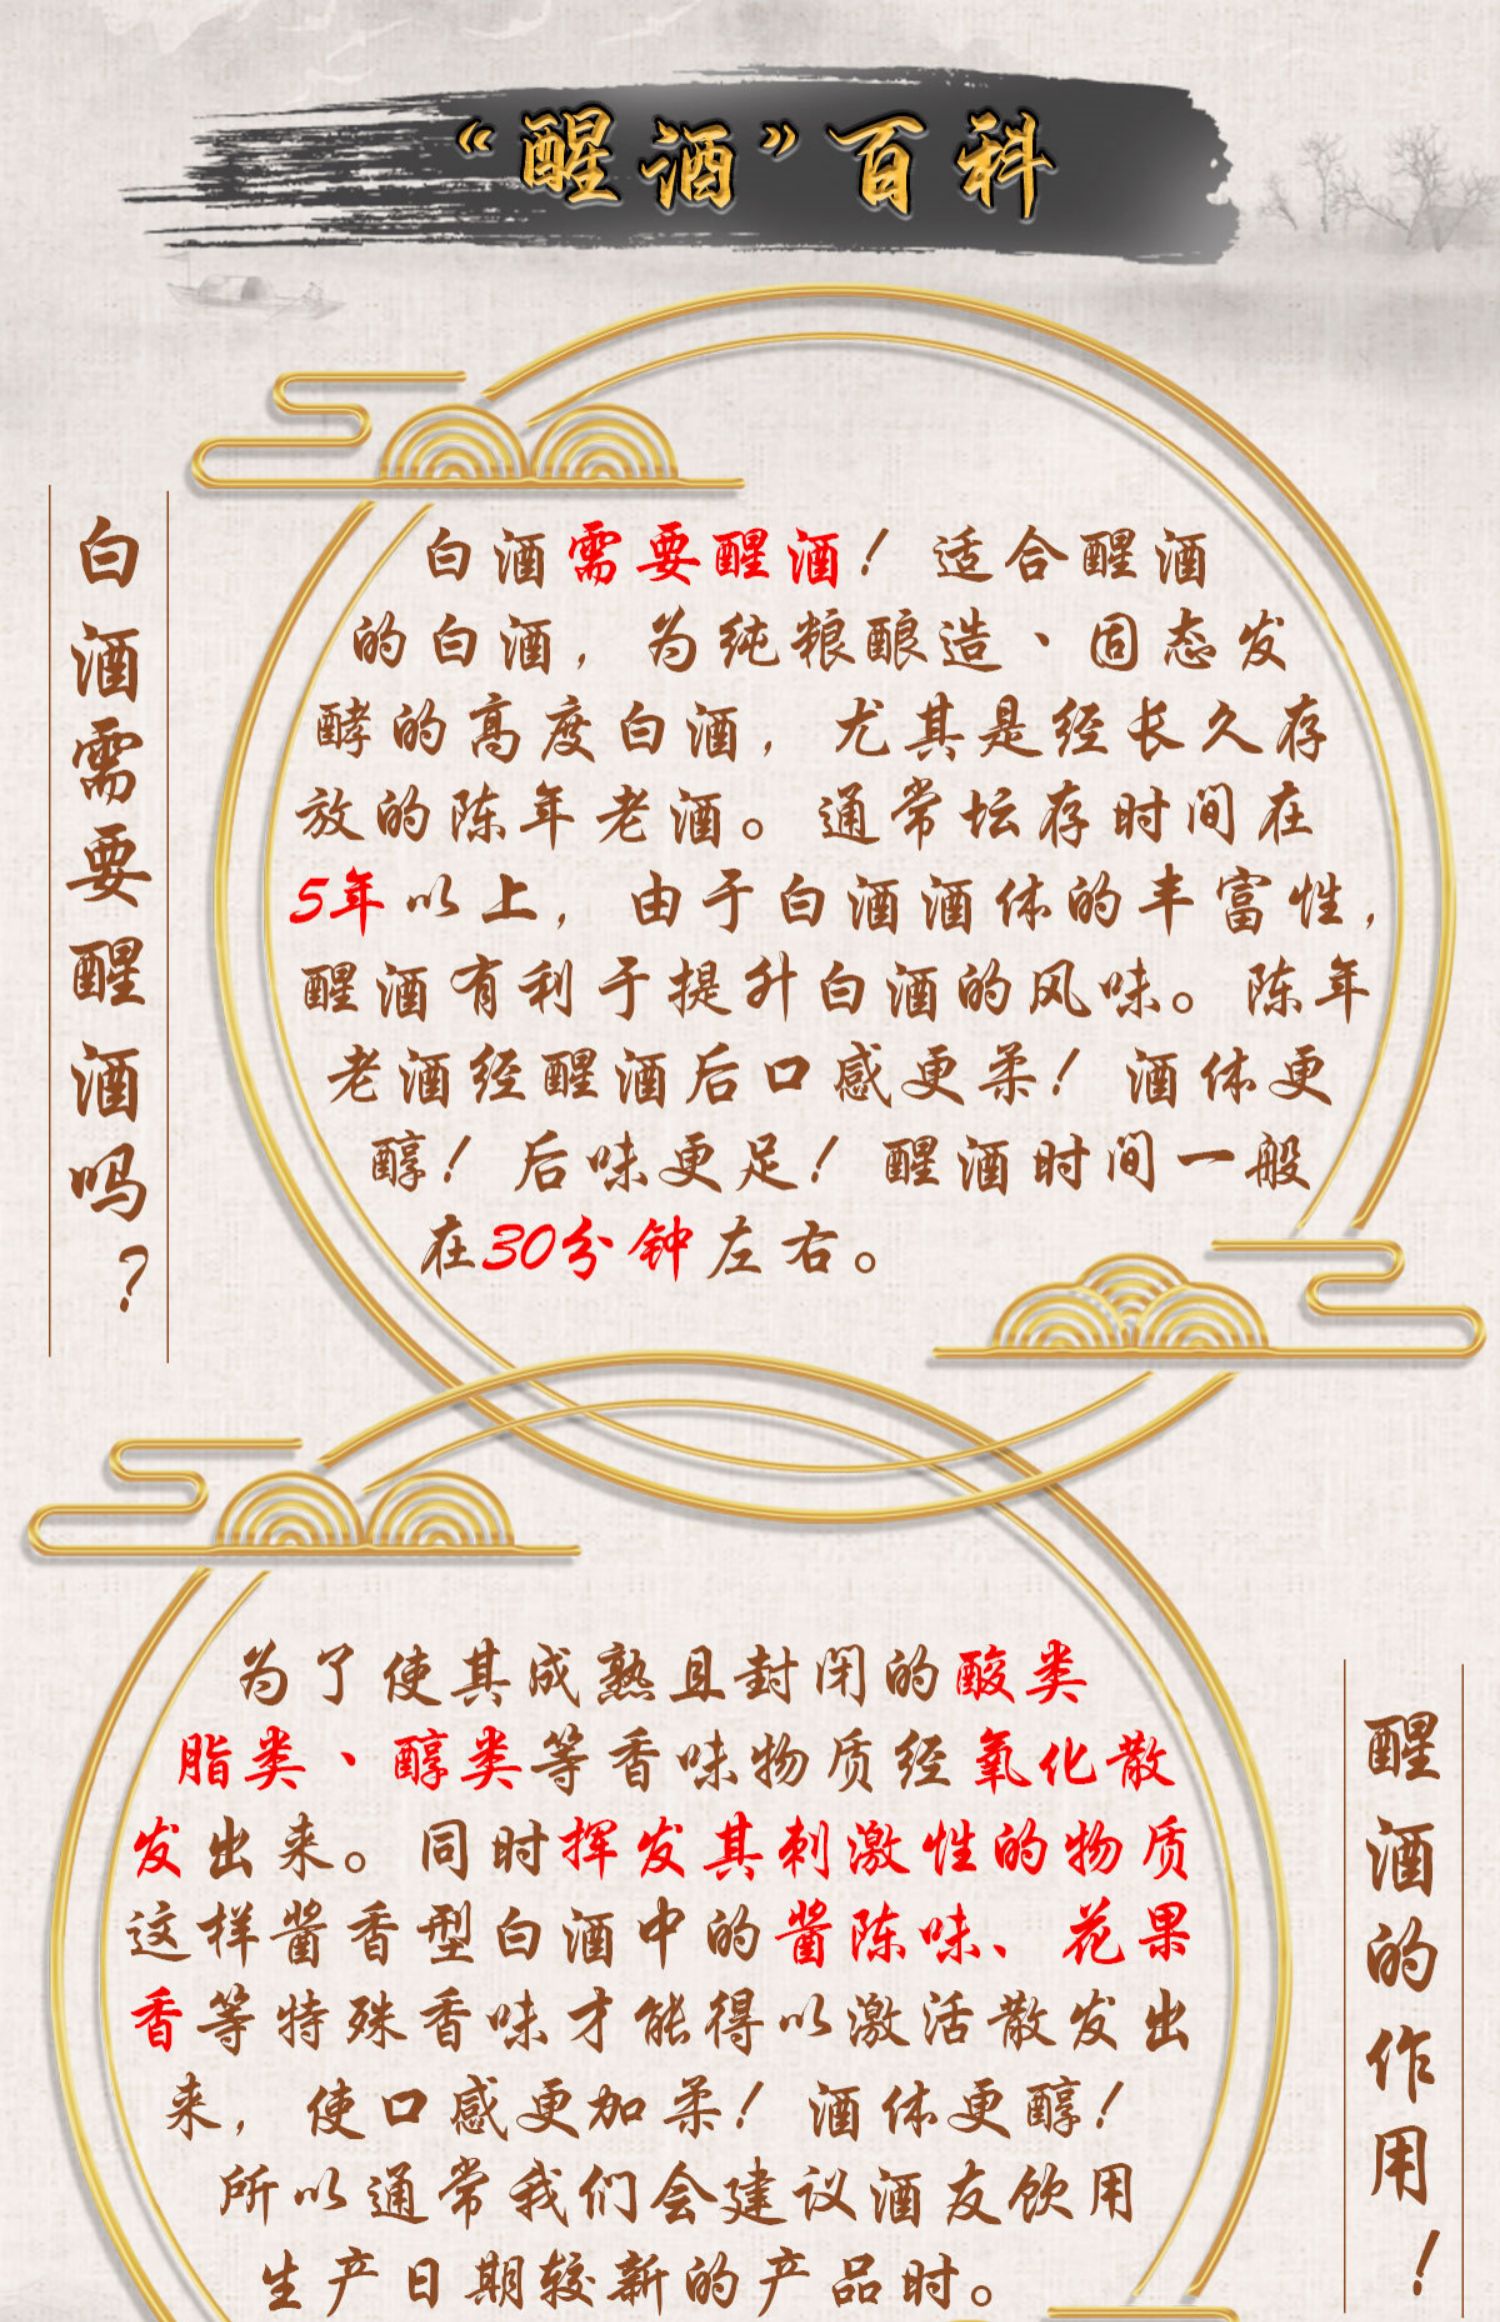 “醒酒”百科
白酒需要醒酒吗？
白酒需要醒酒！适合醒酒
的白酒，为纯粮酿造、固态发
酵的高度白酒，尤其是经长久存
放的陈年老酒。通常坛存时间在
5年以上，由于白酒酒体的丰富性，
醒酒有利于提升白酒的风味。陈年
老酒经醒酒后口感更柔！酒体更
醇！后味更足！醒酒时间一般
在30分钟左右。
醒酒的作用！
为了使其成熟且封闭的酸类
脂类、醇类等香味物质经氧化散
发出来。同时挥发其刺激性的物质
这样酱香型白酒中的酱陈味、花果
香等特殊香味才能得以激活散发出
来，使口感更加柔！酒体更醇！
所以通常我们会建议酒友饮用
生产日期较新的产品时。